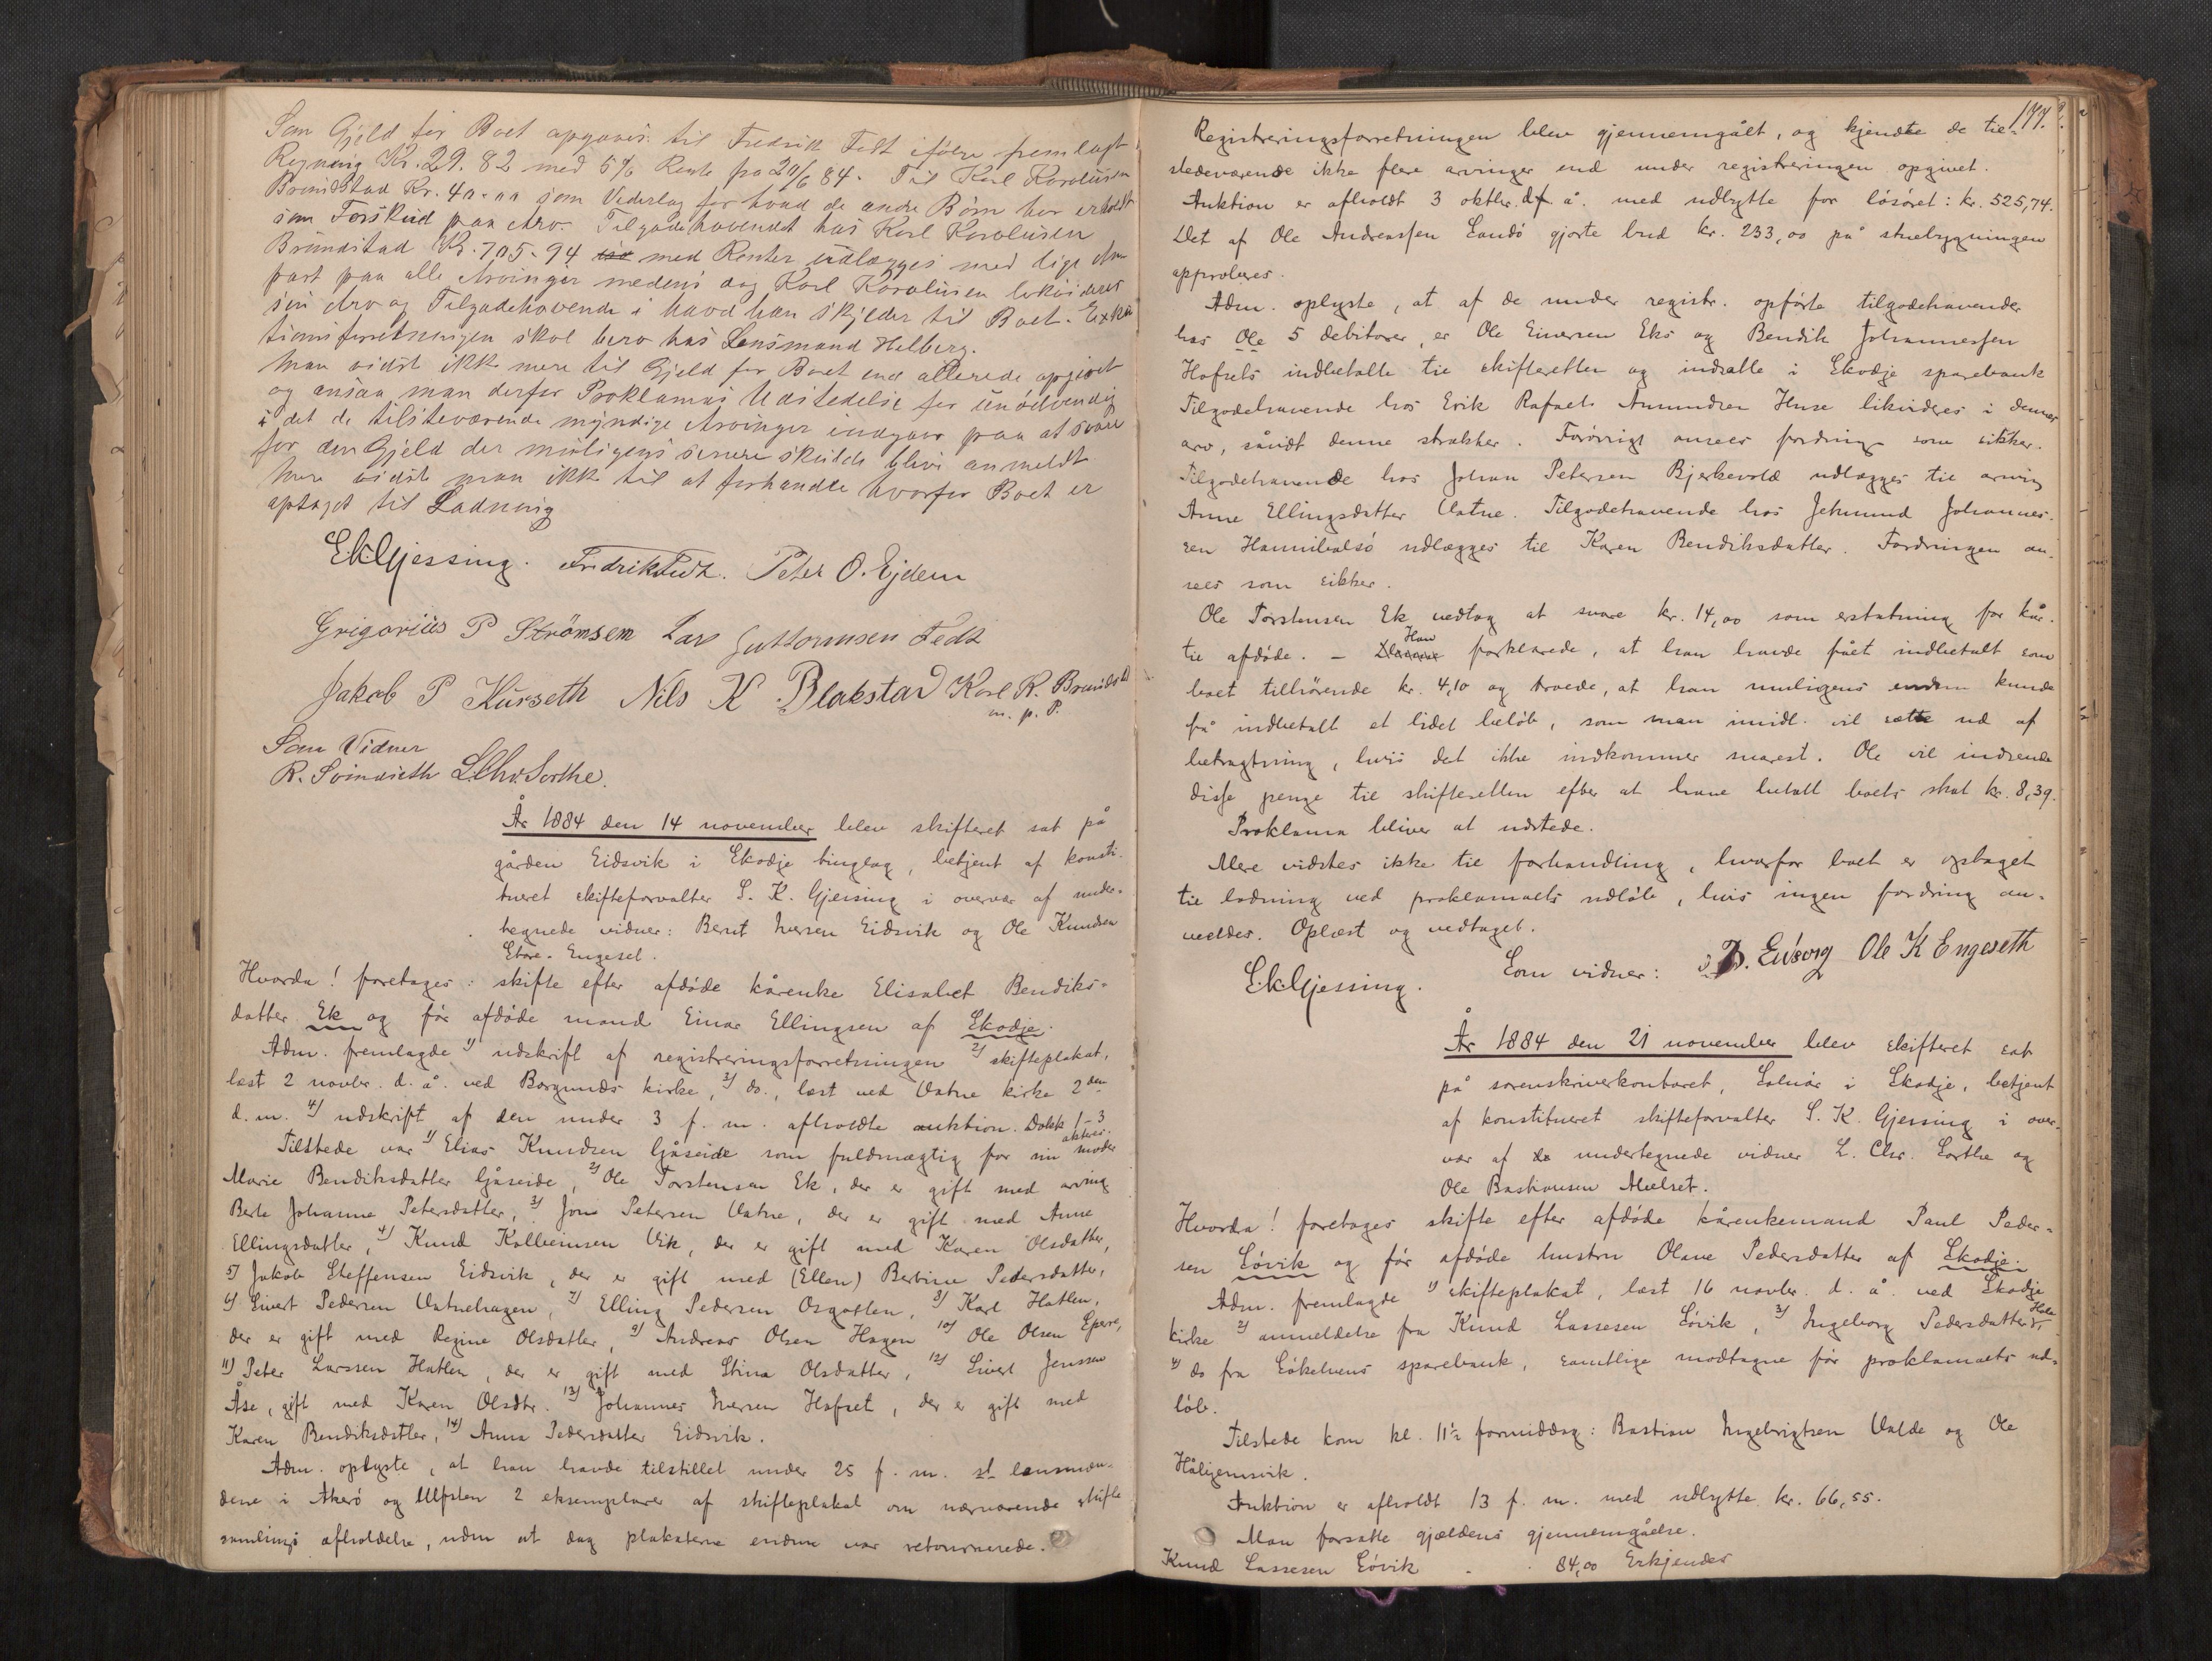 Som Gjeld for Boet opgaves: til Fredrik Tedt ifølge fremlagt
Regning Kr. 29.82 med 5% Rente fra 20/6 84. Til Karl Karolusen
Brundstad Kr. 40.00 som Vederlag for hvad de andre Børn har erholdt
som Forskud paa Arv. Tilgodehavendet hos Karl Karolusen
Brundstad Kr. 705.94 med Renter udlægges med lige
part paa alle Arvinger medens dog Karl Karolusen likviderer
sin Arv og Tilgodehavende i hvad han skylder til Boet.
tionsforretningen skal bero hos Lensmand Helberg.
Man vidste ikke mere til Gjeld for Boet end allerede opgivet
og ansaa man derfor Proklamas Udstedelse for unødvendig
i det de tilstedeværende myndige Arvinger indgaar paa at svare
for den Gjeld der muligens senere skulde blive anmeldt
Mere vidste man ikke til at forhandle hvorfor Boet er
optaget til Ladning
S.K. Gjessing. Fredrik Tedt. Peter O. Ejdem
Grigorius P Strömsem Lars Guttormsen Tedt
Jakob P Kurseth Nils K Blakstad Karl K. Brundstad
m. p. P.
Som Vidner
R. Svindseth L. Chr. Sorthe.
År 1884 den 14 november blev skifteret sat på
gården Eidsvik i Skodje tinglag, betjent af konsti-
tueret skifteforvalter S. K. Gjessing i overvær af under-
tegnede vidner: Bernt Iversen Eidsvik og Ole Knudsen
Store-Engeset.
Hvorda! foretages: skifte efter afdøde kårenke Elisabet Bendiks-
datter Ek og før afdøde mand Einar Ellingsen af Skodje.
Adm. fremlagde 1) udskrift af registreringsforretningen 2) skifteplakat,
læst 2 novbr. d. å. ved Borgunds kirke, 3) do., læst ved Vatne kirke 2den
d. m. 4) udskrift af den under 3 f. m. afholdte auktion. Dokk 1-3
akteres.
Tilstede var 1) Elias Knudsen Gåseide som fuldmægtig for sin moder
Marie Bendiksdatter Gåseide, 2) Ole Torstensen Ek, der er gift med arving
Berte Johanne Petersdatter, 3) Jons Petersen Vatne, der er gift med Anne
Ellingsdatter, 4) Knud Kolbeinsen Vik, der er gift med Karen Olsdatter,
5) Jakob Steffensen Eidsvik, der er gift med (Ellen) Berbine Pedersdatter,
6) Sivert Pedersen Vatnehagen, 7) Elling Pedersen Osgoten, 8) Karl Hatlen,
der er gift med Regine Olsdatter, 9) Andreas Olsen Hagen 10) Ole Olsen
11) Peter Larssen Hatlen, der er gift med Stina Olsdatter, 12) Sivert Jenssen
Åse, gift med Karen Olsdtr. 13) Johannes Iversen Hofset, der er gift med
Karen Bendiksdatter, 14) Anna Pedersdatter Eidsvik.
Adm. oplyste, at han havde tilstillet under 25 f. m. lensmæn-
dene i Akerö og Ulfsten 2 eksemplarer af skifteplakat om nærværende skifte
samlings afholdelse, uden at dog plakaterne endnu var retournerede.
177.
Registreringsforretningen blev gjennemgått, og kjendte de til-
stedeværende ikke flere arvinger end under registreringen opgivet.
Auktion er afholdt 3 oktbr. d. å. med udbytte for løsöret: kr. 525,74.
Det af Ole Andreassen Landö gjorte bud kr. 233,00 på stuebygningen
approberes.
Adm. oplyste, at af de under registr. opførte tilgodehavender
hos Ole 5 debitorer, er Ole Einersen Eks og Bendik Johannessen
Hofsets indbetalte til skifteretten og indsatte i Skodje sparebank
Tilgodehavende hos Erik Rafael Amundsen Huse likvideres i dennes
arv, såvidt denne strækker. Forøvrigt ansees fordring som sikker.
Tilgodehavende hos Johan Petersen Bjerkevold udlægges til arving
Anne Ellingsdatter Vatne. Tilgodehavende hos Jetmund Johannes-
sen Hannibalsö udlægges til Karen Bendiksdatter. Fordringen an-
sees som sikker.
Ole Torstensen Ek vedtog at svare kr. 14,00 som erstatning for kår
til afdøde. – Han forklarede, at han havde fået indbetalt som
boet tilhørende kr. 4,10 og troede, at han muligens endnu kunde
få indbetalt et lidet beløb, som man imidl. vil sætte ud af
betragtning, hvis det ikke indkommer snarest. Ole vil indsende
disse penge til skifteretten efter at have betalt boets skat kr. 8,39.
Proklama bliver at udstede.
Mere vidstes ikke til forhandling, hvorfor boet er optaget
til ladning ved proklamaets udløb, hvis ingen fordring an-
meldes. Oplæst og vedtaget.
S.K. Gjessing. Som vidner: Ole K Engeseth
År 1884 den 21 november blev skifteret sat
på sorenskriverkontoret, Solnör i Skodje, betjent
af konstitueret skifteforvalter S. K. Gjessing i over-
vær af de undertegnede vidner L. Chr. Sorthe og
Ole Bastiansen Mielset.
Hvorda! foretages skifte efter afdøde kårenkemand Paul Peder-
sen Løvik og før afdøde hustru Olave Pedersdatter af Skodje.
Adm. fremlagde 1) skifteplakat, læst 16 novbr. d. å. ved Skodje
kirke 2) anmeldelse fra Knud Lassesen Løvik, 3) Ingeborg Pedersdatter
4) do fra Søkelvens sparebank, samtlige modtagne før proklamaets ud-
løb.
Tilstede kom kl. 11½ formiddag: Bastian Ingebrigtsen Valde og Ole
Håhjemsvik.
Auktion er afholdt 13 f. m. med udbytte kr. 66,55.
Man forsatte gjældens gjennemgåelse.
Knud Lassesen Løvik - 84,00 Erkjendes